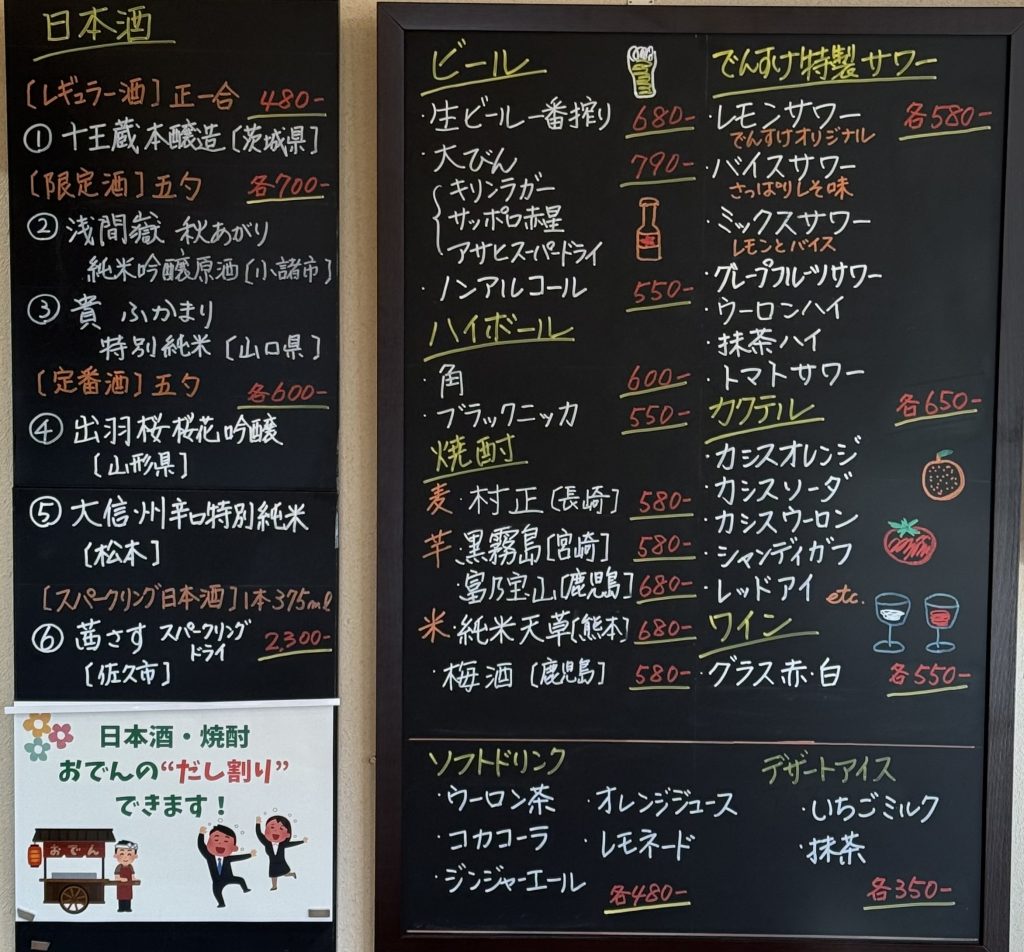 日本酒
［レギュラー酒］正一合 480-
① 十王蔵本醸造［茨城県］
［限定酒］五勺 各700-
② 浅間嶽 秋あがり
純米吟醸原酒［小諸市］
③ 貴 ふかまり
特別純米［山口県］
［定番酒］五勺 各600-
④ 出羽桜桜花吟醸
［山形県］
⑤ 大信州辛口特別純米
［松本］
［スパークリング日本酒］1本375ml
⑥ 茜さす スパークリング
ドライ 2,300-
［佐久市］
日本酒・焼酎
おでんの“だし割り”
できます！
おでん
ビール
・生ビール一番搾り 680-
・大びん 790-
キリンラガー
サッポロ赤星
アサヒスーパードライ
・ノンアルコール 550-
ハイボール
・角 600-
・ブラックニッカ 550-
焼酎
麦・村正［長崎］ 580-
芋・黒霧島［宮崎］ 580-
・富乃宝山［鹿児島］ 680-
米・純米天草［熊本］ 680-
・梅酒［鹿児島］ 580-
でんすけ特製サワー
・レモンサワー 各580-
でんすけオリジナル
・バイスサワー
さっぱりしそ味
・ミックスサワー
レモンとバイス
・グレープフルーツサワー
・ウーロンハイ
・抹茶ハイ
・トマトサワー
カクテル 各650-
・カシスオレンジ
・カシスソーダ
・カシスウーロン
・シャンディガフ
・レッドアイ etc.
ワイン
・グラス赤・白 各550-
ソフトドリンク
・ウーロン茶 ・オレンジジュース
・コカコーラ ・レモネード
・ジンジャーエール 各480-
デザートアイス
・いちごミルク
・抹茶
各350-